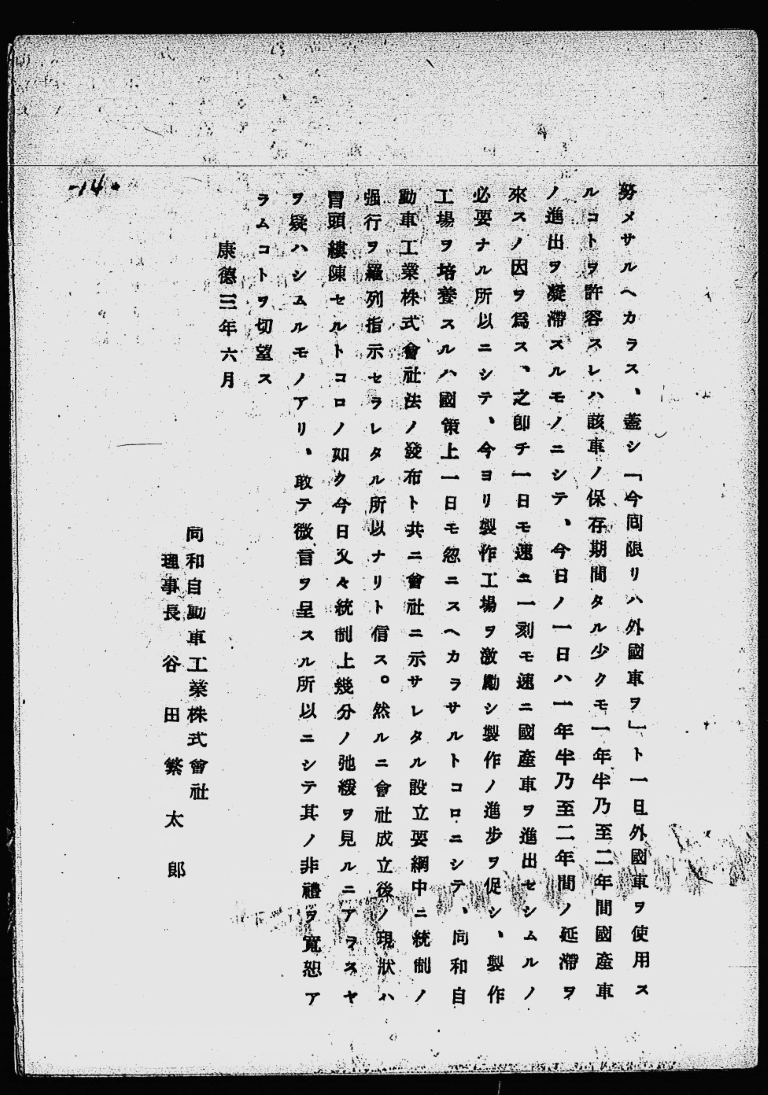 -14-
努メサルヘカラス、蓋シ「今囘限リハ外國車ヲ」ト一旦外國車ヲ使用ス
ルコトヲ許容スレハ該車ノ保存期間タル少クモ一年半乃至二年間國產車
ノ進出ヲ凝滯スルモノニシテ、今日ノ一日ハ一年半乃至二年間ノ延滯ヲ
來スノ因ヲ爲ス、之卽チ一日モ速ニ一刻モ速ニ國產車ヲ進出セシムルノ
必要ナル所以ニシテ、今ヨリ製作工場ヲ激勵シ製作ノ進步ヲ促シ、製作
工場ヲ培養スルハ國策上一日モ忽ニスヘカラサルトコロニシテ、同和自
動車工業株式會社法ノ發布ト共ニ會社ニ示サレタル設立要綱中ニ統制ノ
强行ヲ羅列指示セラレタル所以ナリト信ス。然ルニ會社成立後ノ現狀ハ
冒頭縷陳セルトコロノ如ク今日又々統制上幾分ノ弛緩ヲ見ルニアラスヤ
ヲ疑ハシムルモノアリ、敢テ微言ヲ呈スル所以ニシテ其ノ非禮ヲ寬恕ア
ラムコトヲ切望ス
康德三年六月
同和自動車工業株式會社
理事長 谷田繁太郎